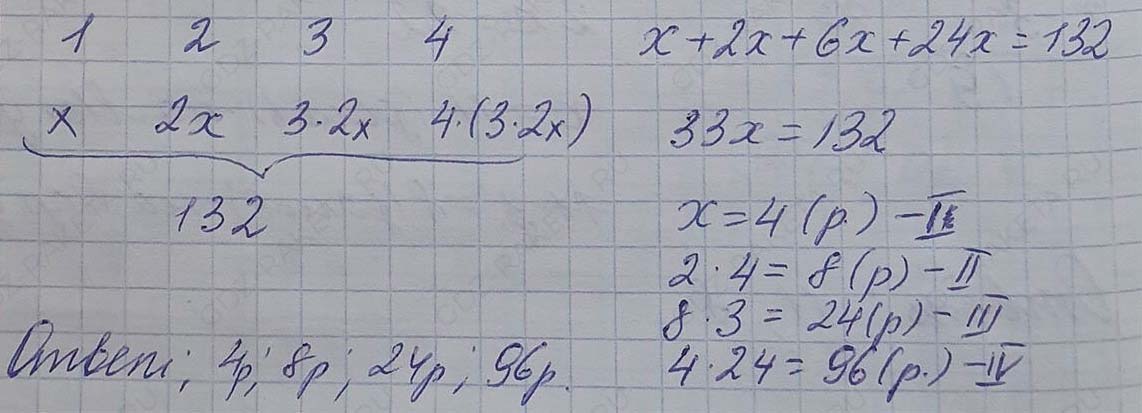 1 2 3 4
x 2x 3·2x 4·(3·2x)
132
Ответ: 4р; 8р; 24р; 96р.
x+2x+6x+24x=132
33x=132
x=4 (р.) –
2·4= 8(р) – II
8·3 = 24(р) – III
4·24= 96(р.) – IV